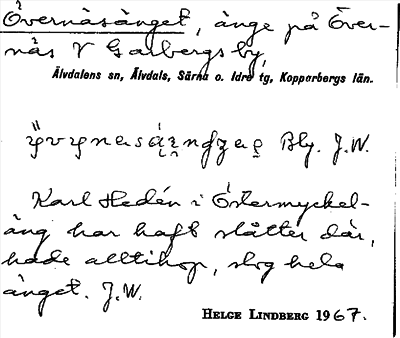 Övernäsänget, änge på Över-
näs V Garbergs by,
Älvdalens sn, Älvdals, Särna o. Idre tg, Kopparbergs län.
Bly. J.W.
Karl Hedén i Östermyckel-
äng har haft slåtter där,
hade alltihop, slog hela
änget. J.W.
HELGE LINDBERG 1967.